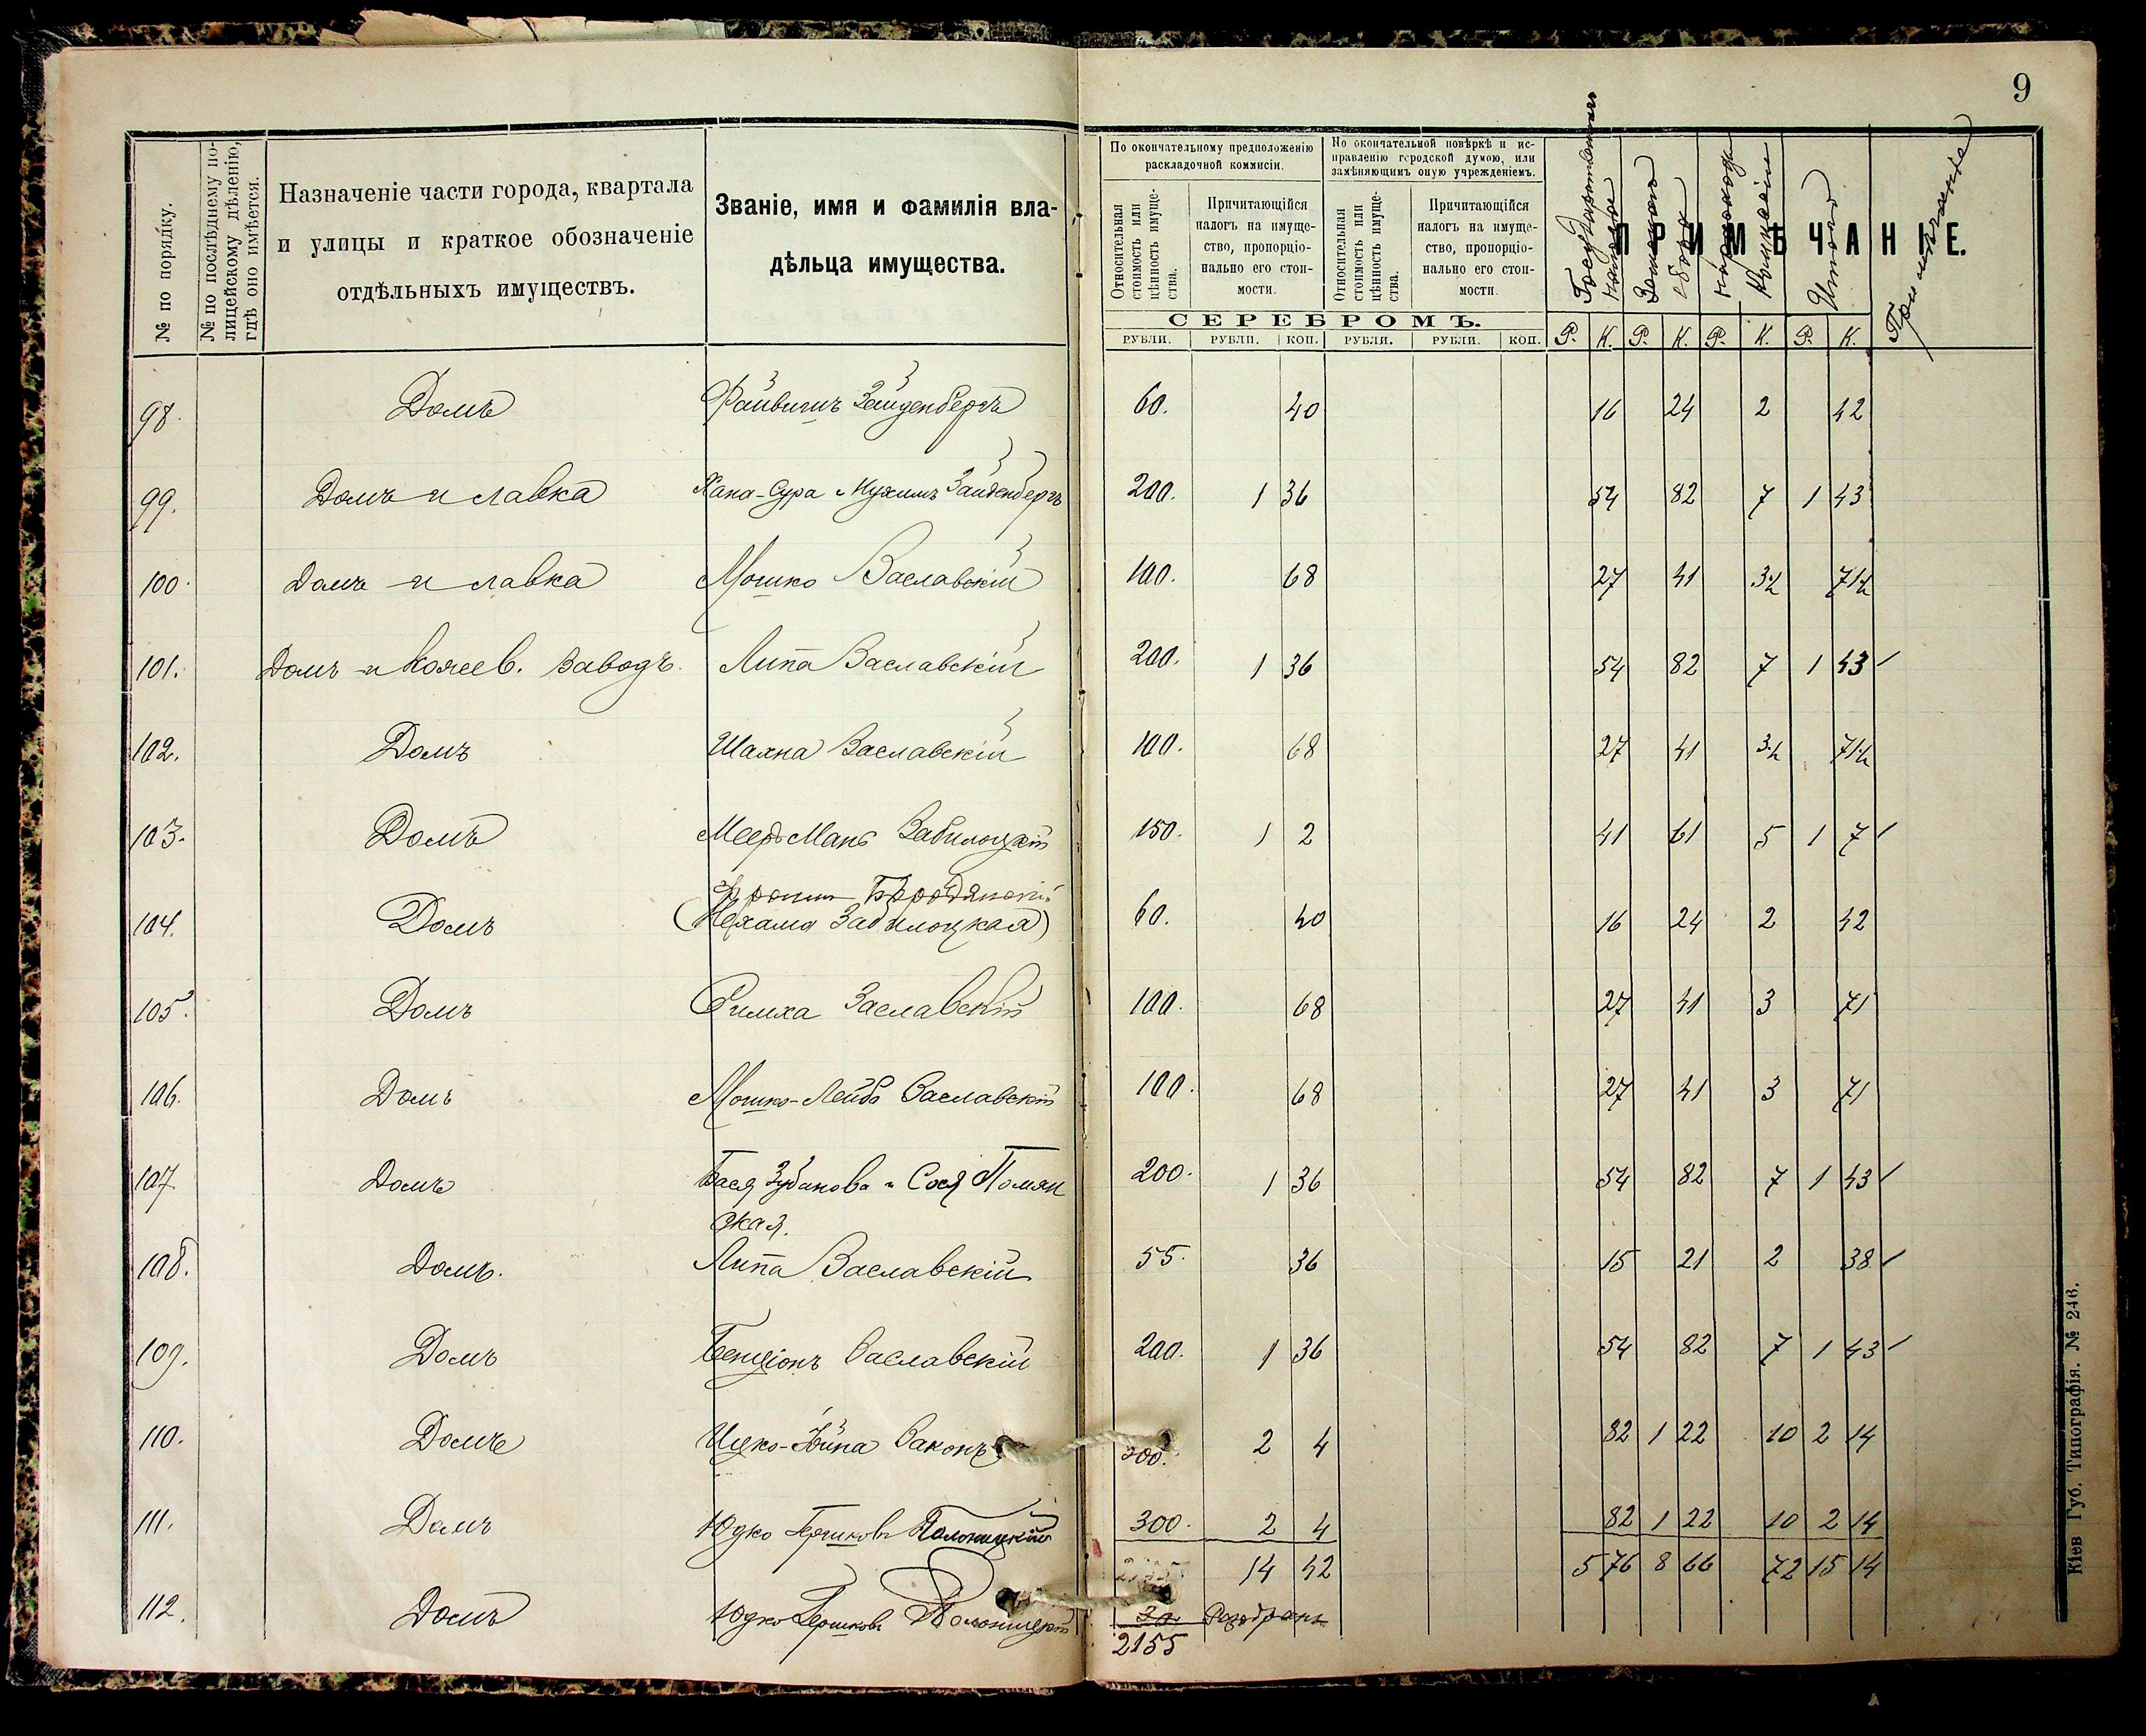 9
№ по порядку.
№ по послѣднему по-
лицейскому дѣленію,
гдѣ оно имѣется.
Назначеніе части города, квартала
и улицы и краткое обозначеніе
отдѣльныхъ имуществъ.
Званіе, имя и фамилія вла-
дѣльца имущества.
По окончательному предположенію
раскладочной коммисіи.
По окончательной повѣркѣ и ис-
правленію городской думою, или
замѣняющимъ оную учрежденіемъ.
Относительная
стоимость или
цѣнность имуще-
ства.
Причитающійся
налогъ на имуще-
ство, пропорціо-
нально его стои-
мости.
Относительная
стоимость или
цѣнность имуще-
ства.
Причитающійся
налогъ на имуще-
ство, пропорціо-
нально его стои-
мости.
ПРИМѢЧАНІЕ.
Государственный
налогъ
Земскій
сборъ
Итого
Примѣчаніе
СЕРЕБРОМЪ.
РУБЛИ. РУБЛИ. КОП. РУБЛИ. РУБЛИ. КОП. Р. К. Р. К. Р. К. Р. К.
98. Домъ Файвишъ Зайденбергъ 60. 40 16 24 2 42
99. Домъ и лавка Хана-Сура Зайденбергъ 200. 1 36 54 82 7 1 43
100. Домъ и лавка Мошко Заславскій 100. 68 27 41 3½ 71½
101. Домъ и кожев. заводъ. Липа Заславскій 200. 1 36 54 82 7 1 43
102. Домъ Шаяна Заславскій 100. 68 27 41 3½ 71½
103. Домъ Меер-Мань Забилоцкій 150. 1 2 41 61 5 1 7
Бродянскій
104. Домъ (Нехама Забилоцкая) 60. 40 16 24 2 42
105. Домъ Симха Заславскій 100. 68 27 41 3 71
106. Домъ Мошко-Лейба Заславскій 100. 68 27 41 3 71
107. Домъ Бася Зубанова и Сося Полян 200. 1 36 54 82 7 1 43
ская.
108. Домъ. Липа Заславскій 55. 36 15 21 2 38
109. Домъ Бенціонъ Заславскій 200. 1 36 54 82 7 1 43
110. Домъ Ицко-Хаина Законъ 300. 2 4 82 1 22 10 2 14
111. Домъ Юдко Гершковъ Полоницкій 300. 2 4 82 1 22 10 2 14
14 42 5 76 8 66 72 15 14
112. Домъ Юдко Гершковъ Полоницкій 30 Разобранъ
2155
Кіев Губ. Типографія. № 246.